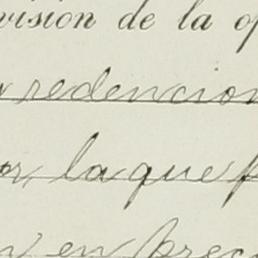 visión de la op
redencion
or, la que p
n en prec